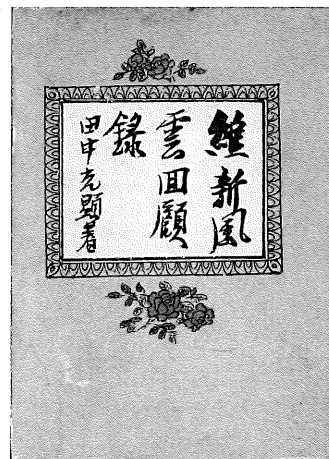 維新風
雲回顧
錄
田中光顯著